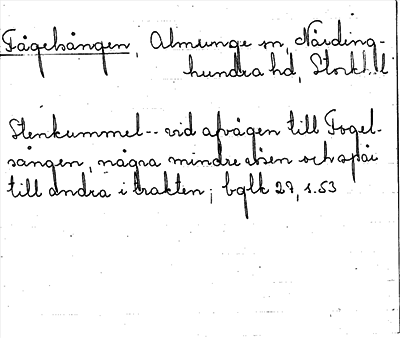 Fågelsången, Almunge sn, Närding-
hundra hd, Storkh.l
Stenkummel-- vid afvägen till Fogel-
sången, några mindre rösen och spår
till andra i trakten; bglk 27, s.53